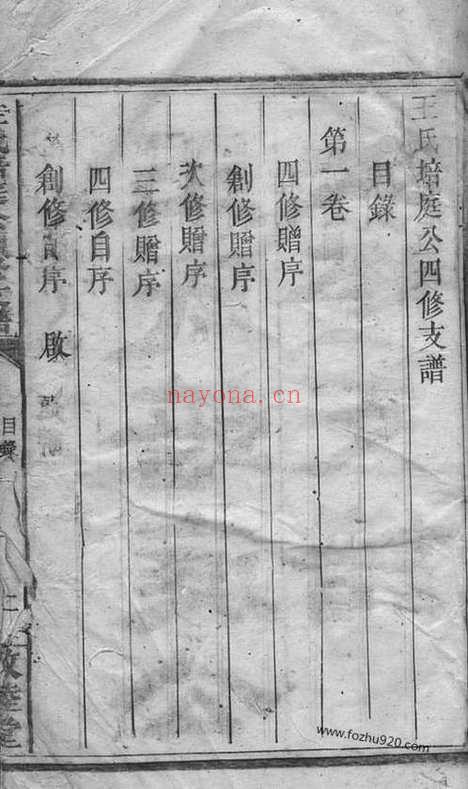 王氏培庭公四修支譜
目錄
第一卷
四修贈序
創修贈序
次修贈序
三修贈序
四修自序
創修自序 啟
目錄
二
敦睦堂
nayona.cn
www.fozhu920.com